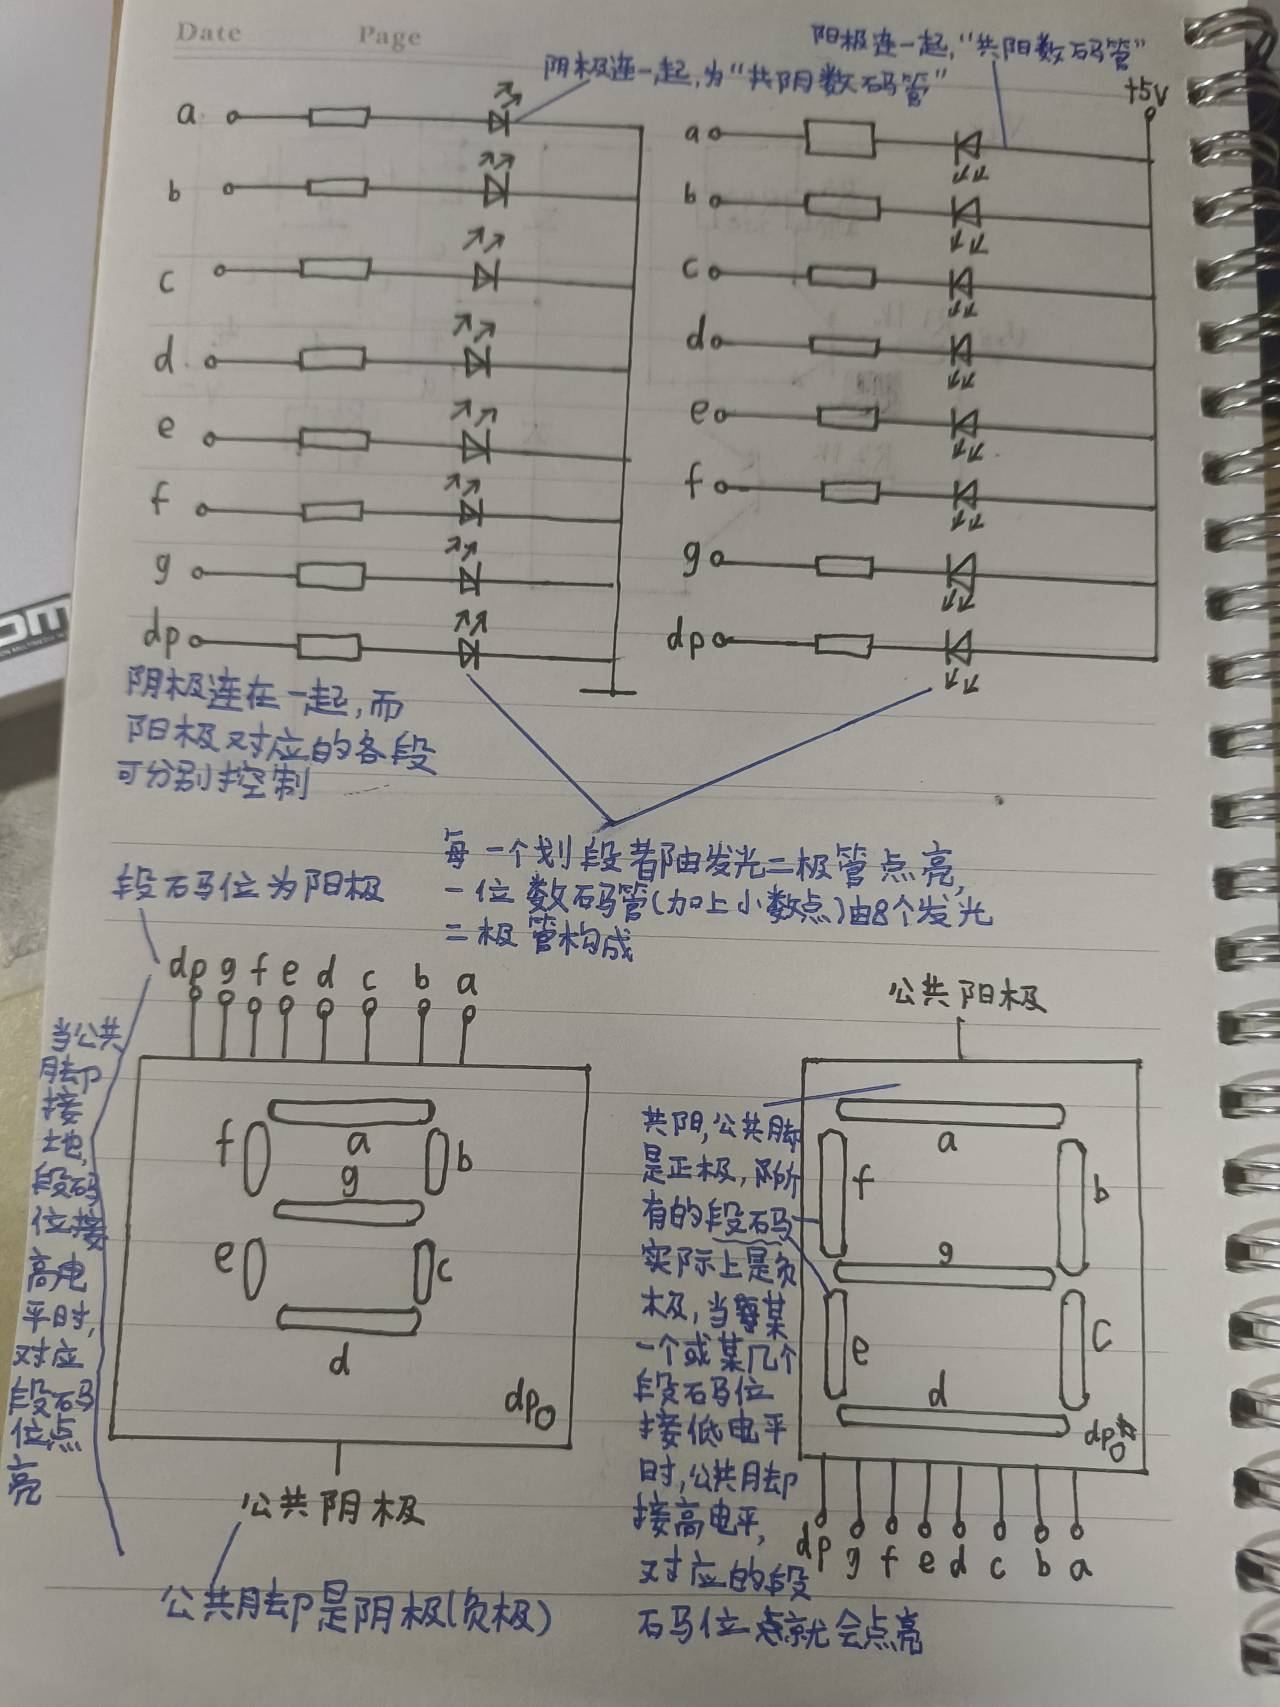 Date Page
阳极连一起,"共阳数码管"
阴极连一起,为"共阴数码管"
+5V
a
b
c
d
e
f
g
dp
a
b
c
d
e
f
g
dp
阴极连在一起,而
阳极对应的各段
可分别控制
每一个划段都由发光二极管点亮,
一位数码管(加上小数点)由8个发光
二极管构成
段码位为阳极
dp g f e d c b a
当公共
脚
接
地,
段码
位接
高电
平时,
对应
段码
位点
亮
a
f
b
g
e
c
d
dp
公共阴极
公共脚是阴极(负极)
公共阳极
共阳,公共脚
是正极,
有的段码
实际上是负
极,当某
一个或某几个
段码位
接低电平
时,公共脚
接高电平,
对应的段
码位就会点亮
a
f
b
g
e
c
d
dp
dp g f e d c b a